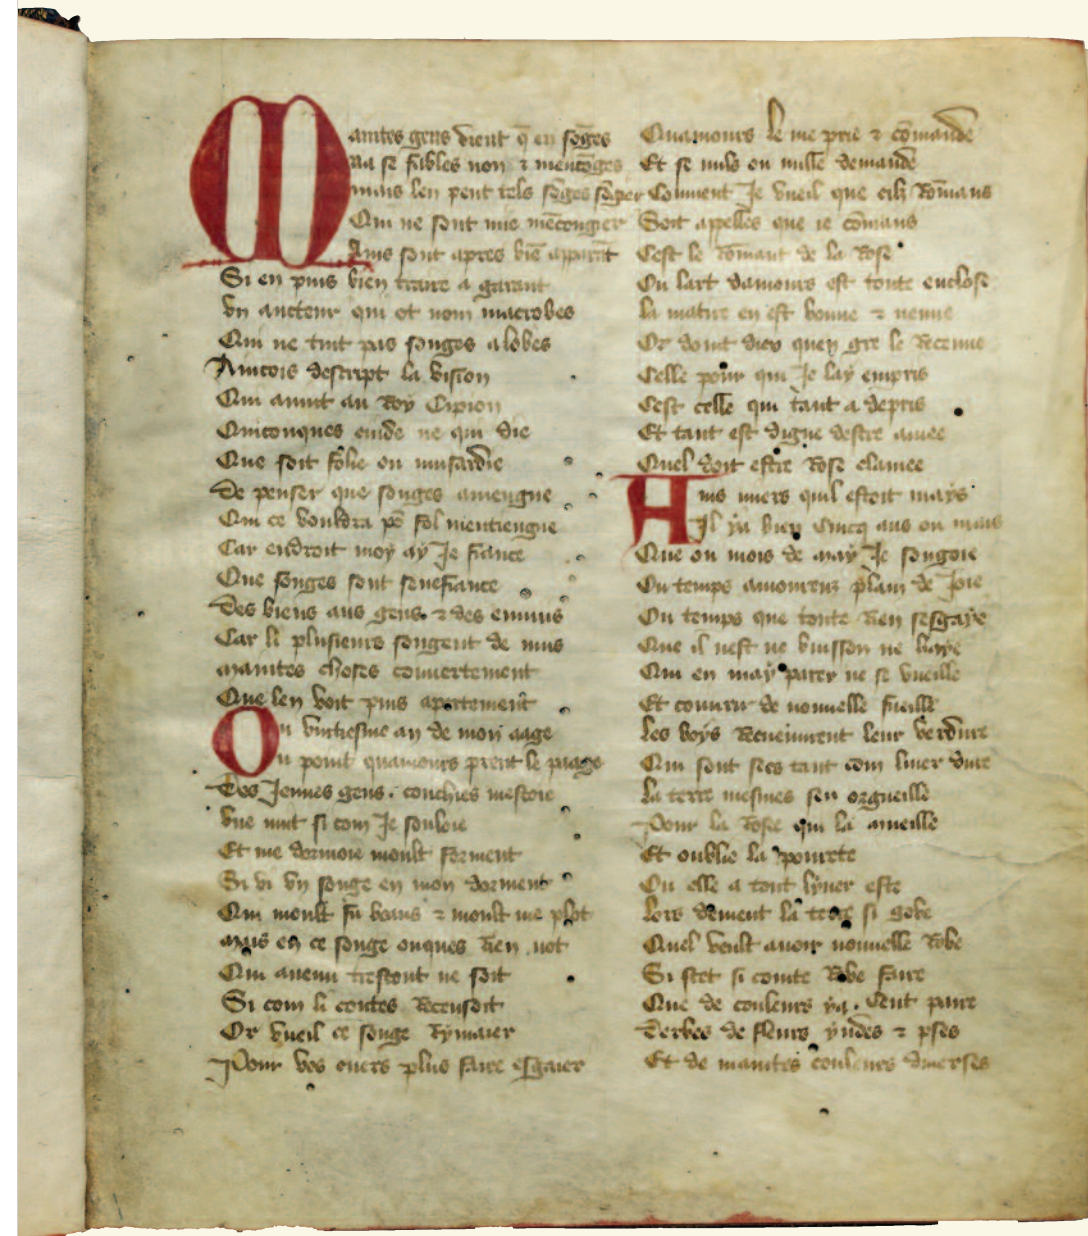 Maintes gens dient q̃ en sõges
Na se fables non ⁊ mencõges
mais len peut tels sõges sõger
Qui ne sont mie mẽconger
Ains sont apres biẽ apparãt
Si en puis bien traire a garant
vn aucteur qui ot nom macrobes
Qui ne tint pas songes a lobes
Aincois descript la vision
Qui auint au Roy Cipion
Quiconques cuide ne qui die
Que soit folie ou musardie
De penser que songes auiengne
Qui ce vouldra po᷑ fol mentiengne
Car endroit moy ay Je fiance
Que songes sont senefiance
Des biens aus gens ⁊ des ennuis
Car li plusieurs songent de nuis
maintes choses couuertement
Que len voit puis apertement
Ou vintiesme an de mon aage
Ou point quamours prent le paage
Des Jeunes gens . couchies mestoie
vne nuit si com Je souloie
Et me dormoie moult forment
Si vi vn songe en mon dorment
Qui moult fu beaus ⁊ moult me plot
mais en ce songe onques Rien not
Qui auenu trestout ne soit
Si com li contes Recensoit
Or vueil ce songe Rymaier
Pour vos cuers plus faire esgaier
Quamours le me prie ⁊ cõmande
Et se nuls ou nulle demande
Comment Je vueil que cilz Rõmans
Soit appelles que ie cõmans
Cest le Rõmant de la Rose
Ou lart damours est toute enclose
la matire en est bonne ⁊ neuue
Or doint diex quen gre le Receuue
Celle pour qui Je lay empris
Cest celle qui tant a de pris
Et tant est digne destre amee
Quel doit estre Rose clamee
Auis miers quil estoit mays
Jl ya bien Cincq ans ou mais
Que ou mois de may Je songoie
Ou temps amoureux plain de Joie
Ou temps que toute Rien sesgaye
Que il nest ne buisson ne haye
Qui en may parer ne se vueille
Et couurir de nouuelle fueille
les boys Recueuurent leur verdure
Qui sont secs tant com liuer dure
la terre mesmes sen orgueille
Pour la Rosee qui la mueille
Et oublie la pourete
Ou elle a tout lyuer este
lors deuient la terre si gobe
Quel veult auoir nouuelle Robe
Si scet si cointe Robe faire
Que de couleurs ya . Cent paire
Derbes de fleurs yndes ⁊ pses
Et de maintes couleurs diuerses